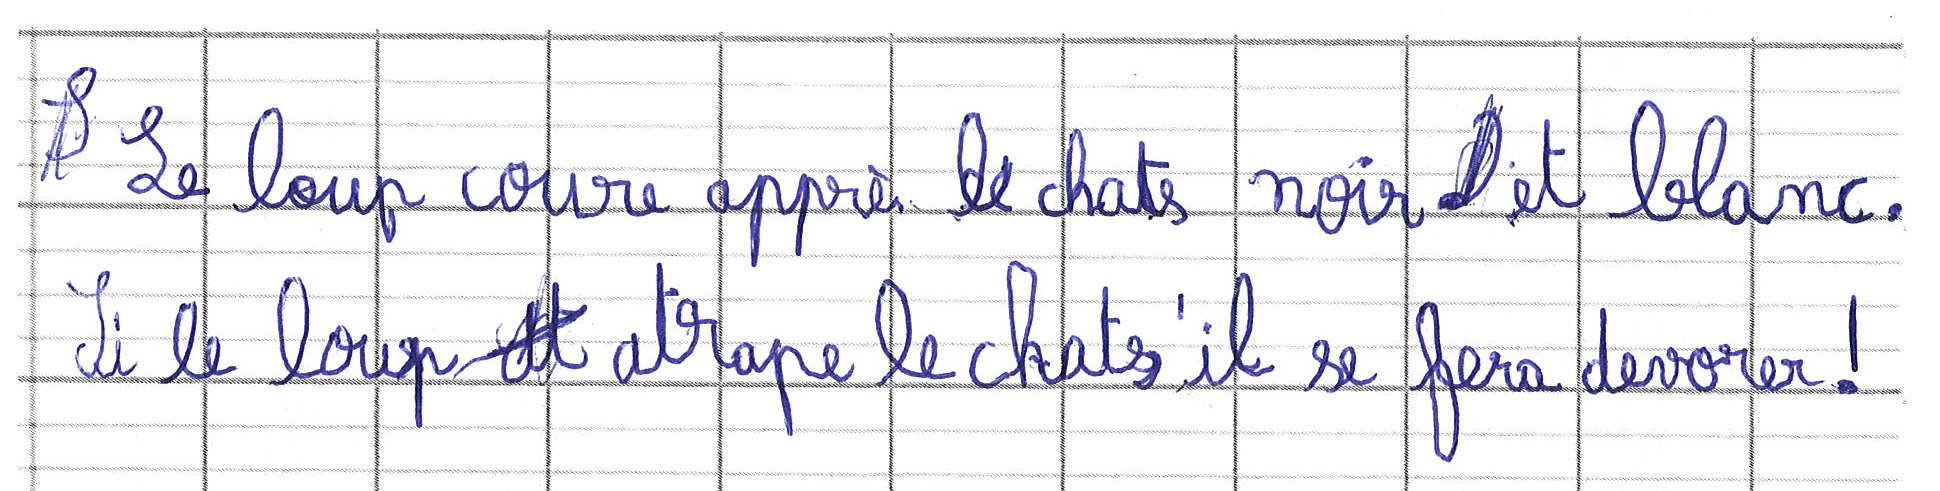 Le loup coure apprè le chats noir et blanc.
Si le loup atrape le chats'il se fera devorer!